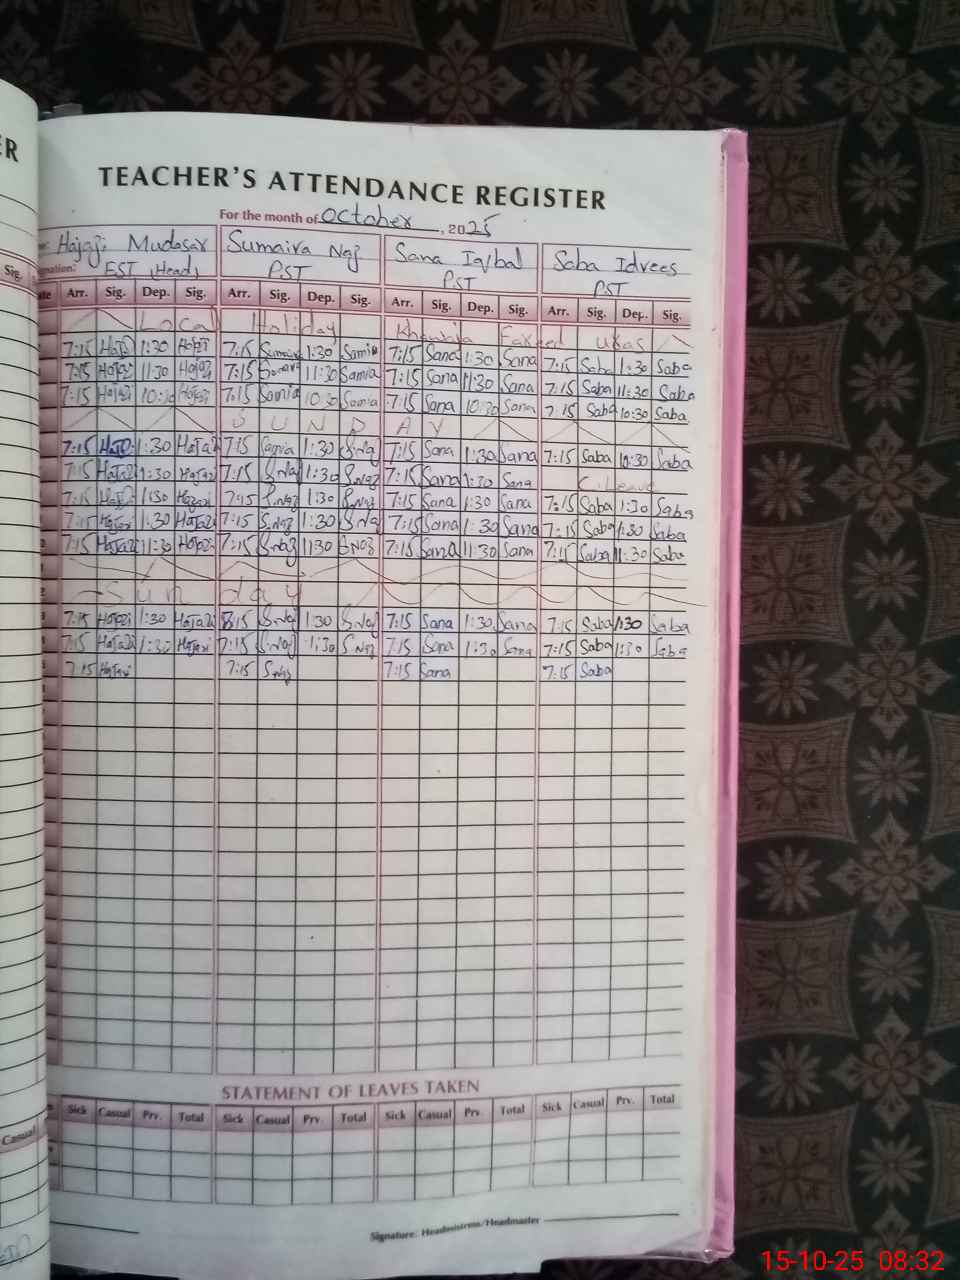 ER
TEACHER'S ATTENDANCE REGISTER
For the month of October, 2025
Mudasar Sumaira Naz Sana Iqbal Saba Idrees
EST (Head) PST PST PST
Sig. Arr. Sig. Dep. Sig. Arr. Sig. Dep. Sig. Arr. Sig. Dep. Sig. Arr. Sig. Dep. Sig.
Local Holiday Khawaja Fareed
7:15 1:30 7:15 1:30 7:15 Sana 1:30 Sana 7:15 Saba 1:30 Saba
7:15 11:30 7:15 11:30 Samia 7:15 Sana 11:30 Sana 7:15 Saba 11:30 Saba
7:15 7:15 Samia 10:30 Samia 7:15 Sana 10:30 Sana 7:15 Saba 10:30 Saba
SUNDAY
7:15 1:30 7:15 Samia 1:30 S.Naz 7:15 Sana 1:30 Sana 7:15 Saba 10:30 Saba
7:15 1:30 7:15 S.Naz 1:30 S.Naz 7:15 Sana 1:30 Sana C.Leave
7:15 1:30 7:15 S.Naz 1:30 S.Naz 7:15 Sana 1:30 Sana 7:15 Saba 1:30 Saba
7:15 1:30 7:15 S.Naz 1:30 S.Naz 7:15 Sana 1:30 Sana 7:15 Saba 1:30 Saba
7:15 11:30 7:15 S.Naz 11:30 S.Naz 7:15 Sana 11:30 Sana 7:15 Saba 11:30 Saba
Sunday
7:15 1:30 S.Naz 1:30 S.Naz 7:15 Sana 1:30 Sana 7:15 Saba 1:30 Saba
7:15 1:30 7:15 S.Naz 1:30 S.Naz 7:15 Sana 1:30 Sana 7:15 Saba 1:30 Saba
7:15 7:15 S.Naz 7:15 Sana 7:15 Saba
STATEMENT OF LEAVES TAKEN
Casual Sick Casual Prv. Total Sick Casual Prv. Total Sick Casual Prv. Total Sick Casual Prv. Total
Signature: Headmistress/Headmaster
15-10-25 08:32